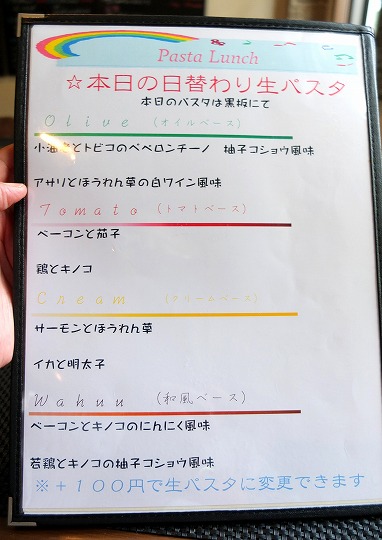 Pasta Lunch
☆本日の日替わり生パスタ
本日のパスタは黒板にて
Olive (オイルベース)
とトビコのペペロンチーノ 柚子コショウ風味
アサリとほうれん草の白ワイン風味
Tomato (トマトベース)
ベーコンと茄子
鶏とキノコ
Cream (クリームベース)
サーモンとほうれん草
イカと明太子
Wahuu (和風ベース)
ベーコンとキノコのにんにく風味
若鶏とキノコの柚子コショウ風味
※+100円で生パスタに変更できます